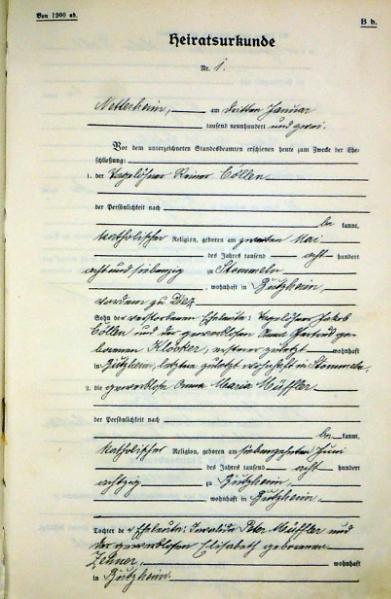 Von 1900 ab.
B b.
Heiratsurkunde
Nr. 1.
am dritten Januar
tausend neunhundert und zwei.
Vor dem unterzeichneten Standesbeamten erschienen heute zum Zwecke der Ehe-
schließung:
1. der Tagelöhner Reiner Cöllen
der Persönlichkeit nach
be kannt,
katholischer Religion, geboren am zweiten Mai
des Jahres tausend acht hundert
acht und siebenzig zu Stommeln
, wohnhaft in Butzheim,
vordem zu
Sohn der verstorbenen Eheleute: Tagelöhner Jakob
Cöllen und der gewerblosen Anna Gertrud ge-
borenen Klöcker, ersterer zuletzt wohnhaft
in Butzheim, letztere zuletzt wohnhaft in Stommeln.
2. die gewerblose Anna Maria Müffler
der Persönlichkeit nach
be kannt,
katholischer Religion, geboren am siebenzehnten Juni
des Jahres tausend acht hundert
achtzig zu Butzheim,
wohnhaft in Butzheim,
Tochter der Eheleute: Invalide Peter Müffler und
der gewerblosen Elisabeth geborenen
wohnhaft
in Butzheim.